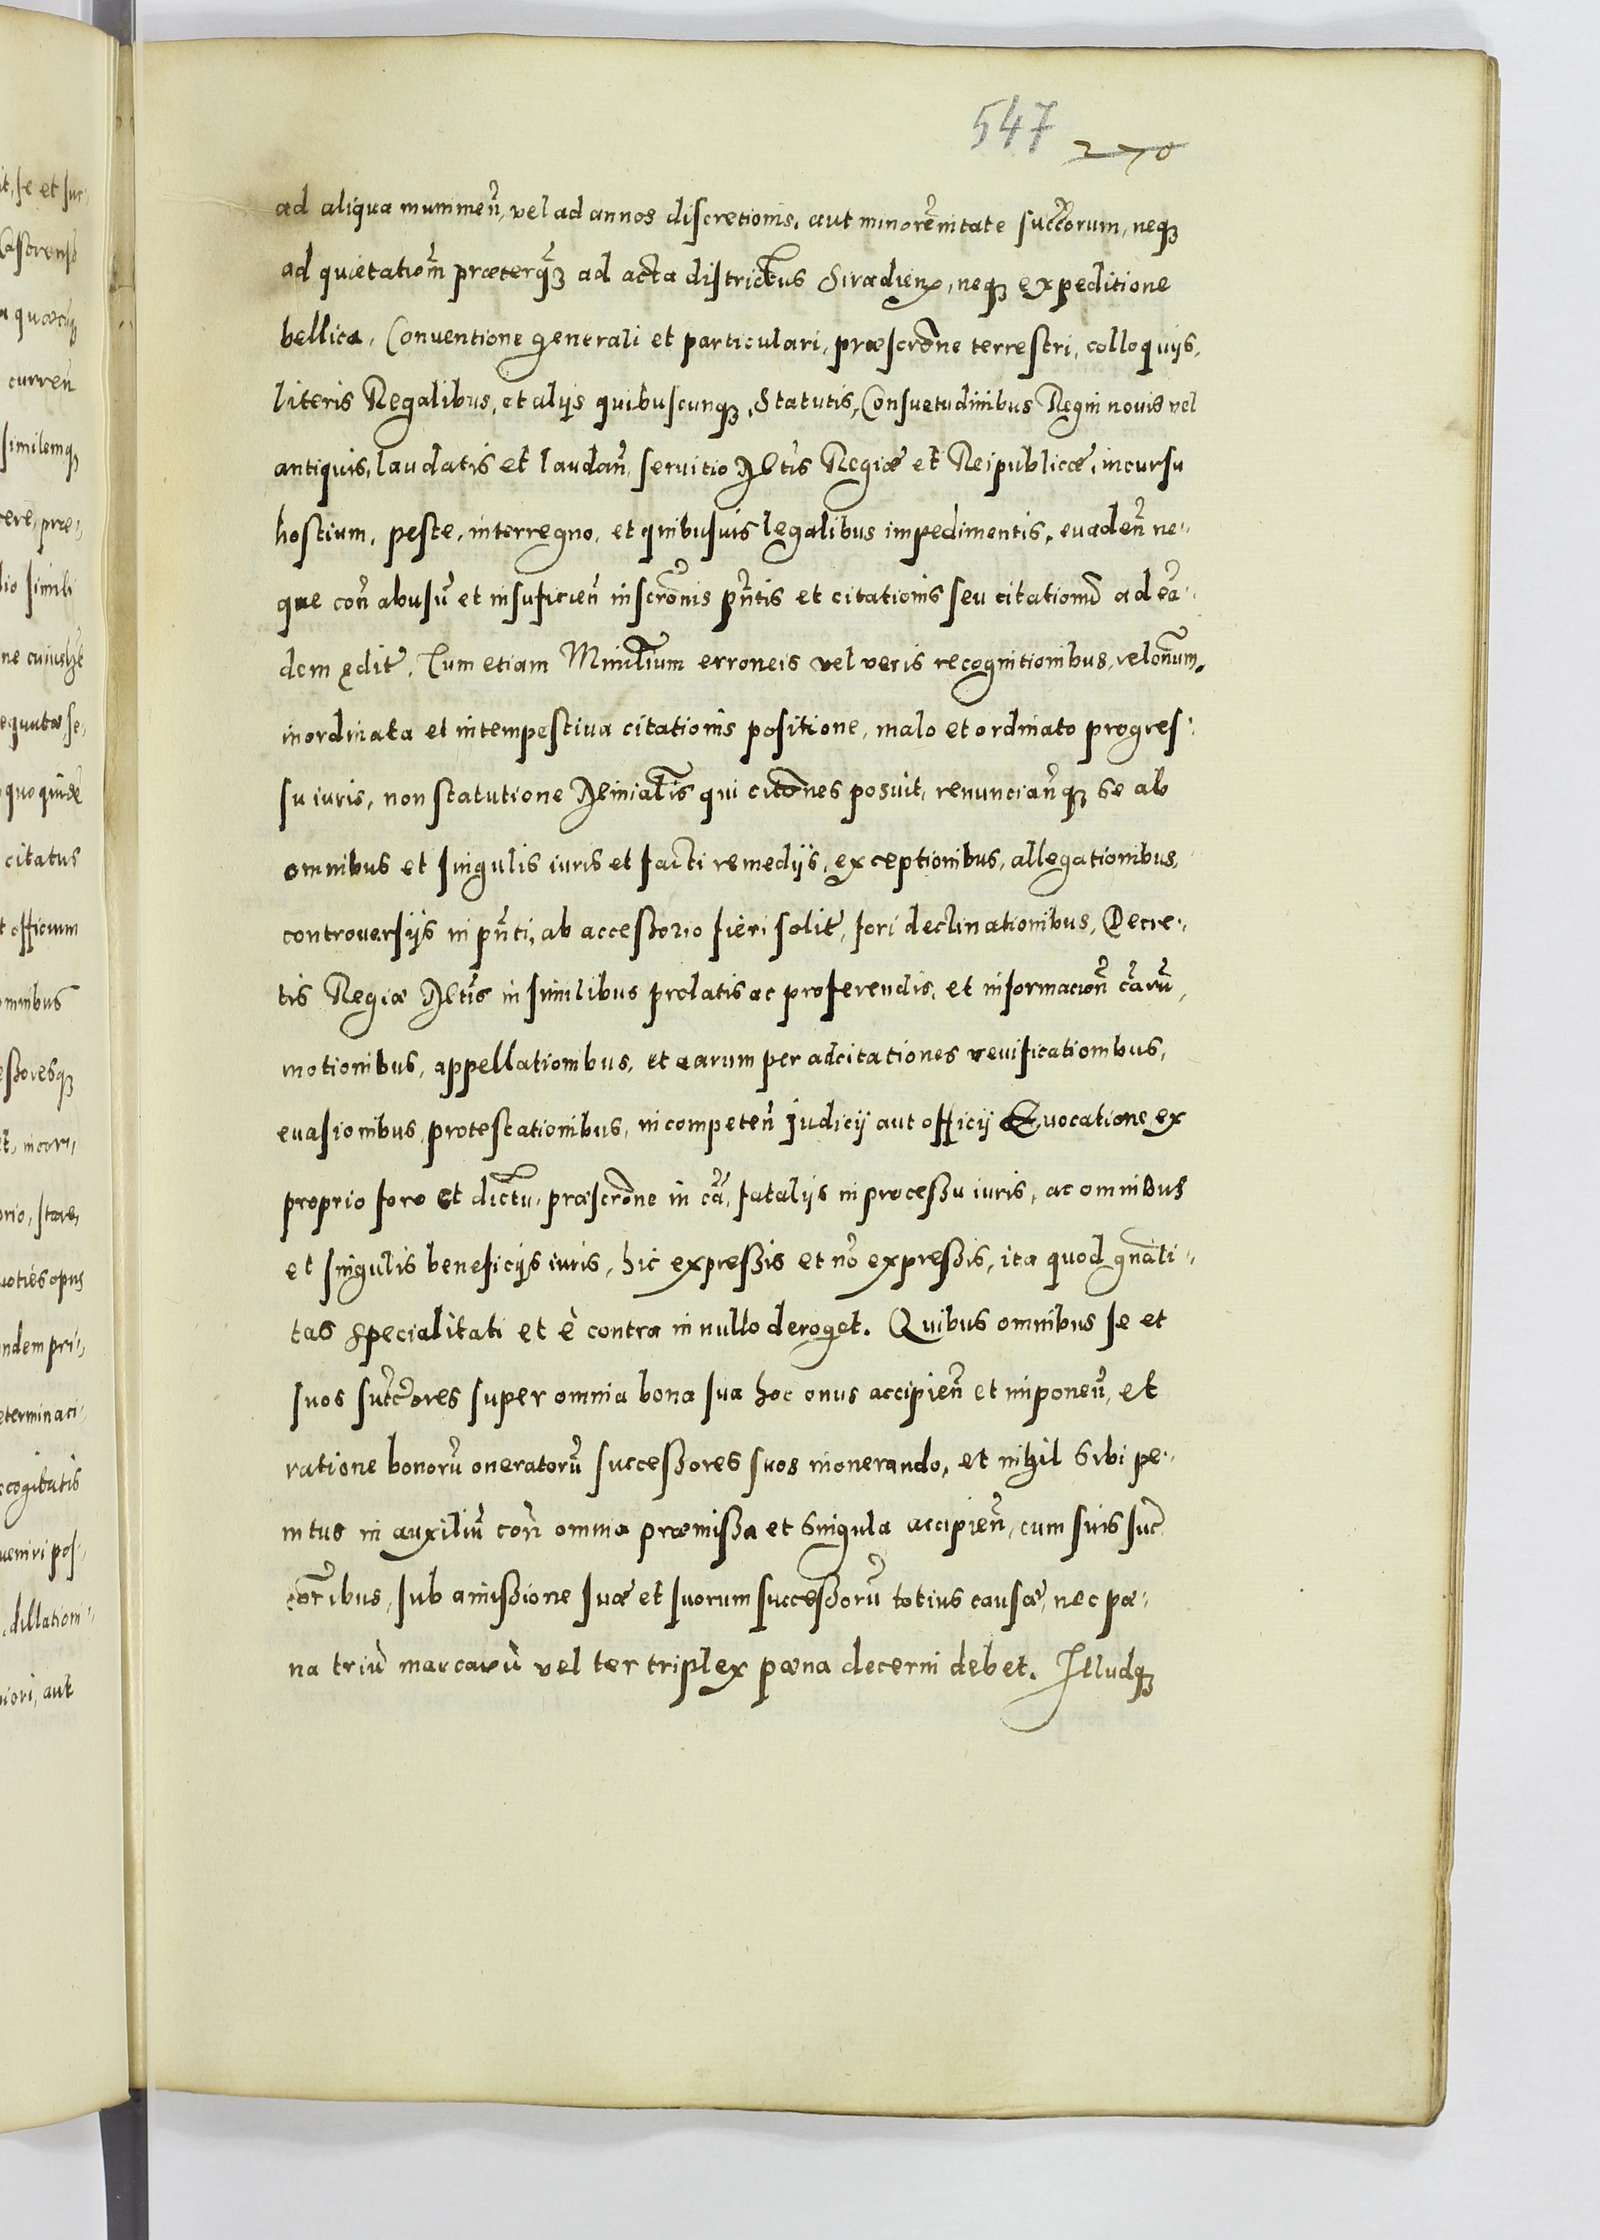 547 270
ad aliqua munimen̄, vel ad annos discretionis, aut minorēnitate succ̄orum, neqꝫ
ad quietatiōm præterqꝫ ad acta districtus Siradienˢ, neqꝫ expeditione
bellica, Conventione generali et particulari, præscrōne terrestri, colloquijs,
literis Regalibus, et alijs quibuscunqꝫ, Statutis, Consuetudinibus Regni novis vel
antiquis, laudatis et laudan̄, servitio Mtis Regiæ et Reipublicæ, incursu
hostium, peste, interregno, et quibusvis legalibus impedimentis, evaden̄ ne-
que con̄ abusū et insuficien̄ inscrōnis pn̄tis et citationis seu citationū ad ea-
dem ędit̄. Tum etiam Minrlium erroneis vel veris recognitionibus, relōnum,
inordinata et intempestiva citationis positione, malo et ordinato progres-
su iuris, non statutione Minialis qui citōnes posuit, renuncian̄qꝫ se ab
omnibus et singulis iuris et facti remedijs, exceptionibus, allegationibus,
controversijs in pn̄ti, ab accessorio fieri solit̄, fori declinationibus, Decre-
tis Regiæ Mtis in similibus prolatis ac proferendis, et informacion̄ cārū,
motionibus, appellationibus, et earum per adcitationes revificationibus,
evasionibus, protestationibus, incompeten̄ Judicij aut officij Evocatione, ex
proprio foro et dictu, præscrōne in cā, fatalijs in processu iuris, ac omnibus
et singulis beneficijs iuris, hic expressis et nō expressis, ita quod gnāli-
tas specialitati et è contra in nullo deroget. Quibus omnibus se et
suos succ̄ores super omnia bona sua hoc onus accipien̄ et imponen̄, et
ratione bonorū oneratorū successores suos inonerando, et nihil sibi pe-
nitus in auxiliū con̄ omnia præmissa et singula accipien̄, cum suis suc
c̄oribus, sub amissione suæ et suorum successorū totius causæ, nec pæ-
na triū marcarū vel ter triplex pæna decerni debet. Illudqꝫ